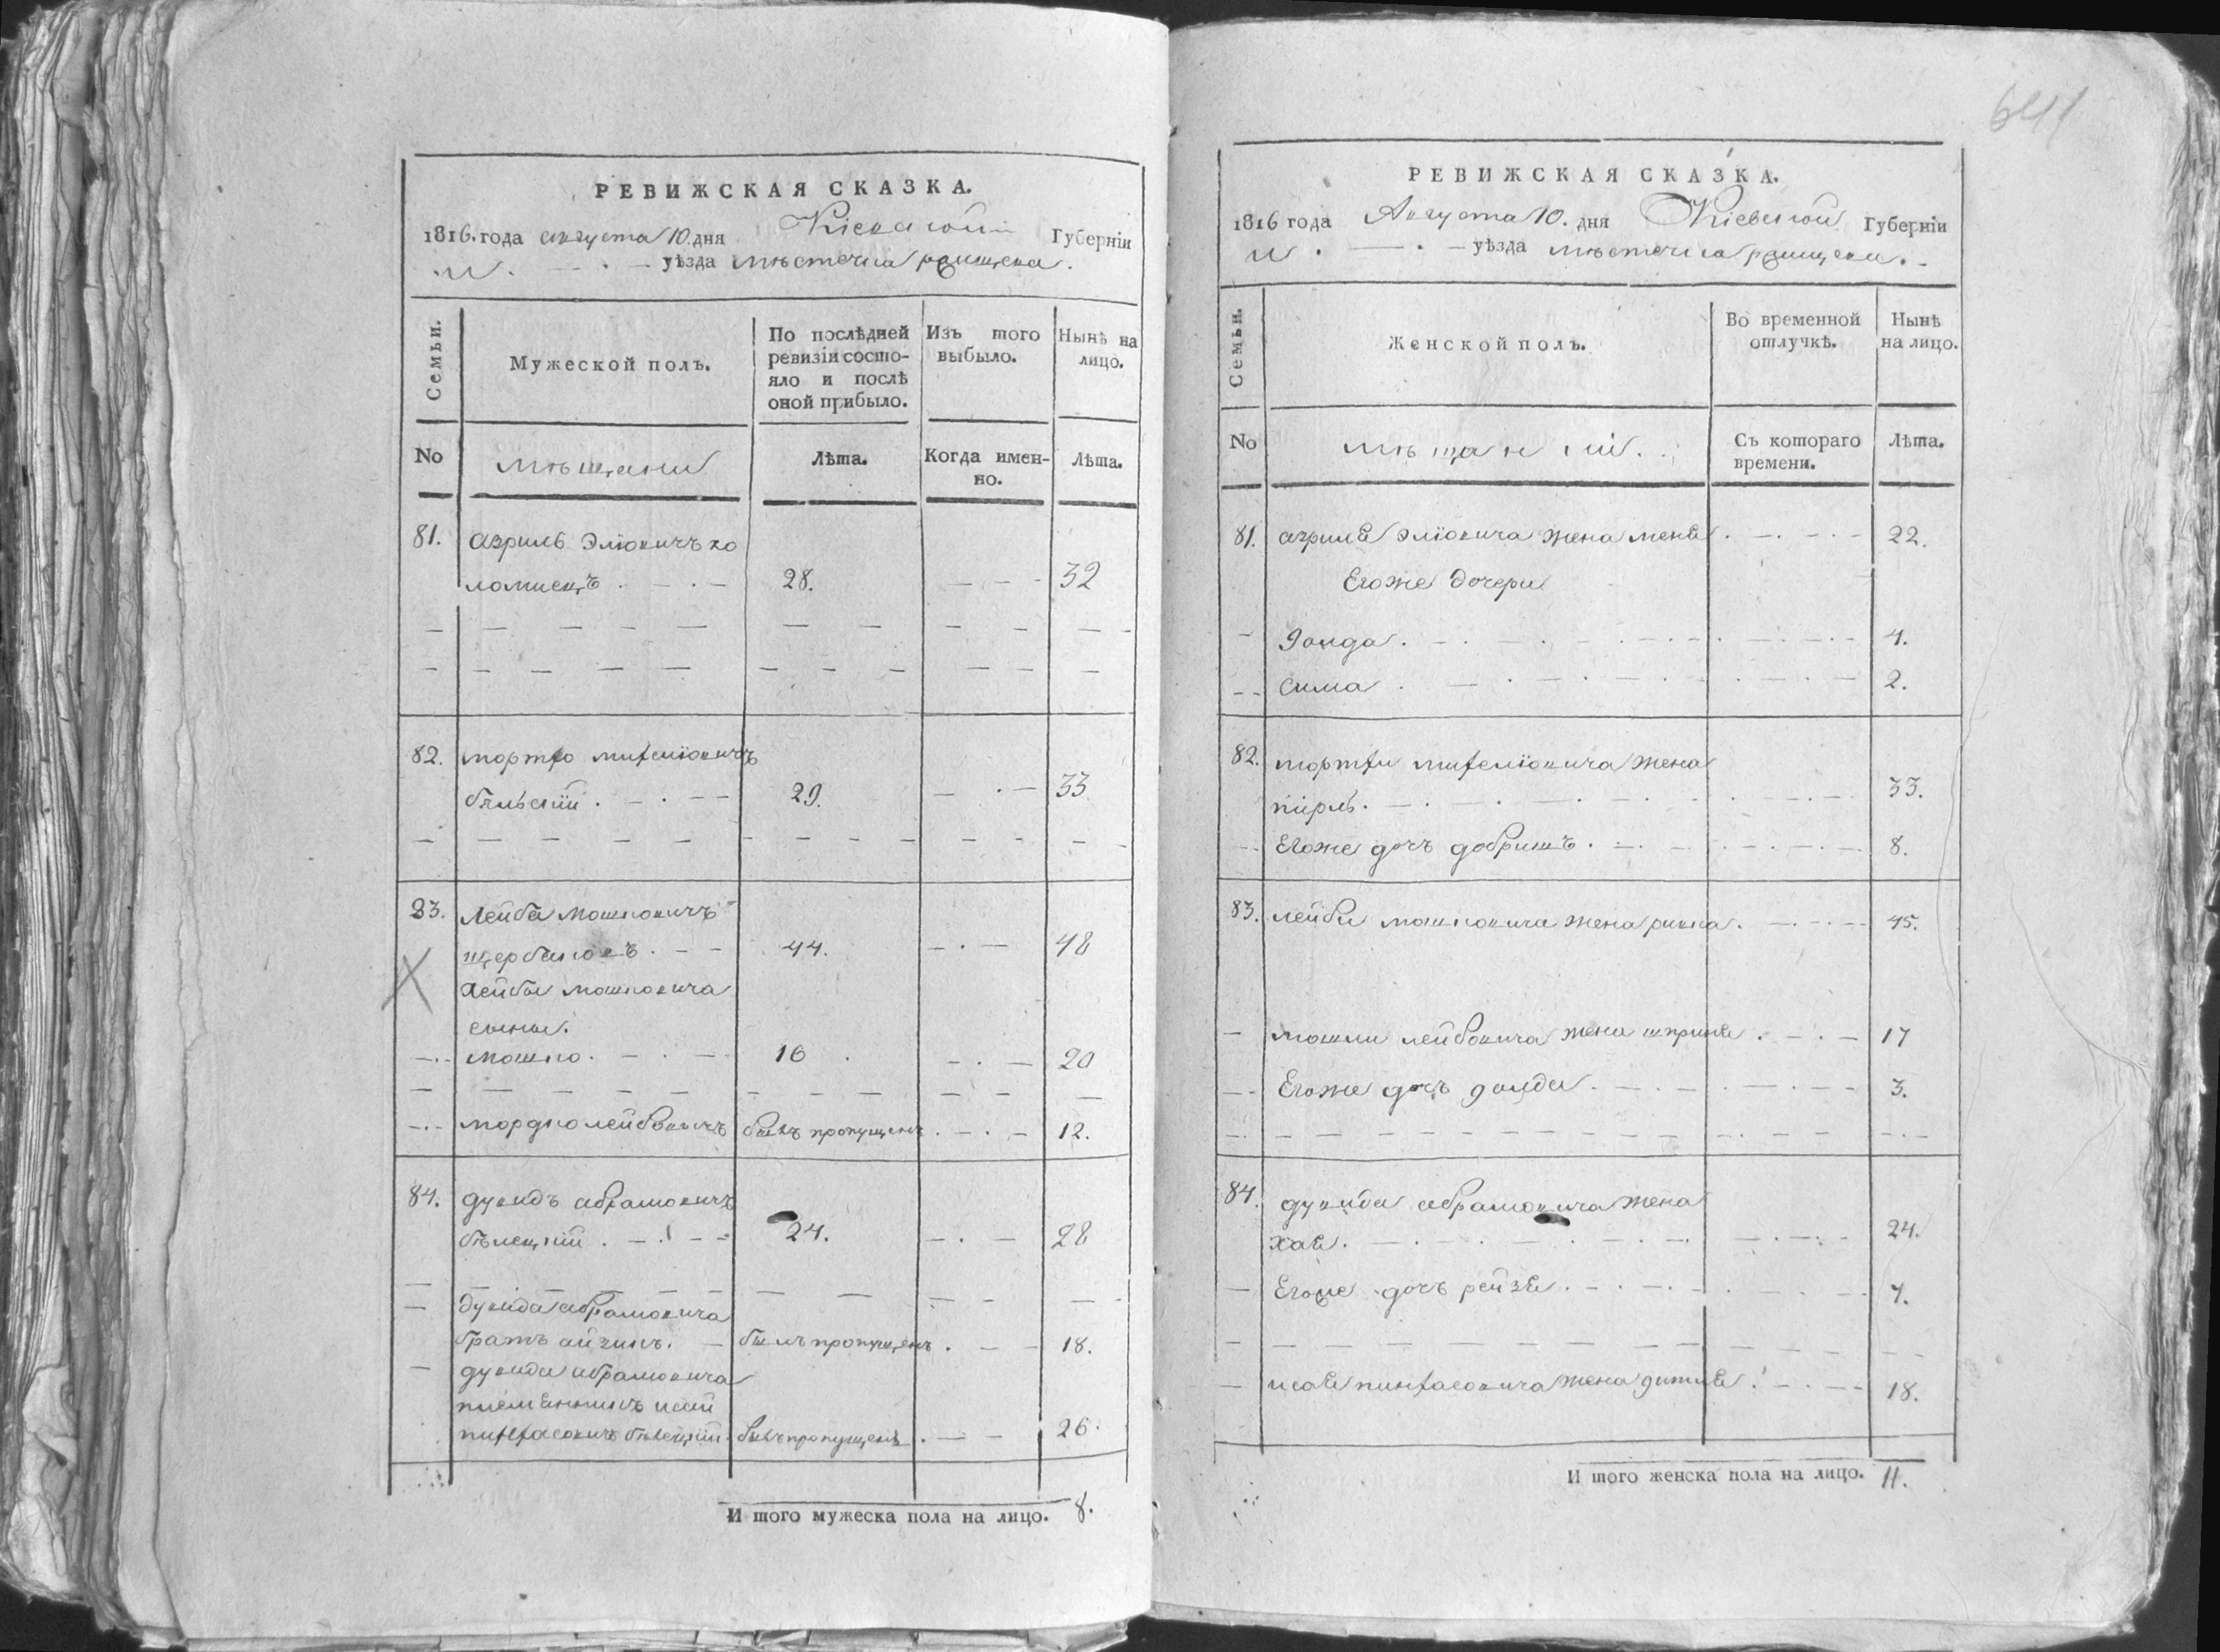 РЕВИЖСКАЯ СКАЗКА.
1816. года августа 10. дня Кіевской Губерніи
уѣзда мѣстечка ращева.
Семьи.
Мужеской полъ.
По послѣдней ревизіи состояло и послѣ оной прибыло.
Изъ того выбыло.
Нынѣ на лицо.
No
мѣщани
Лѣта.
Когда именно.
Лѣта.
81. азриль Эліовичъ ко
ломиецъ 28. 32
82. мортко
бѣльскій 29. 33
83. Лейба Мошковичъ
щербаковъ 44. 48
Лейбы мошковича
сыны.
мошко 16 20
мордко лейбовичъ бывъ пропущенъ 12.
84. Дувидъ абрамовичъ
бѣлецкій 24. 28
Дувида абрамовича
братъ айзикъ. былъ пропущенъ 18.
дувида абрамовича
племѣнникъ
бѣлецкій бывъ пропущенъ 26.
И того мужеска пола на лицо. 8.
641
РЕВИЖСКАЯ СКАЗКА.
1816 года Августа 10. дня Кіевской Губерніи
уѣзда мѣстечка ращева.
Семьи.
Женской полъ.
Во временной отлучкѣ.
Нынѣ на лицо.
No
Съ котораго времени.
Лѣта.
81. азриля эліовича жена 22.
Егоже дочери
голда 4.
сима 2.
82. мортки жена
пірль 33.
Егоже дочъ добришъ 8.
83. лейбы мошковича жена ривка 45.
мошки лейбовича жена шпринѣ 17
Егоже дочъ голда 3.
84. дувида абрамовича жена
хаѣ 24.
Егоже дочъ рейзѣ 4.
исаѣ пинхасовича жена 18.
И того женска пола на лицо. 11.